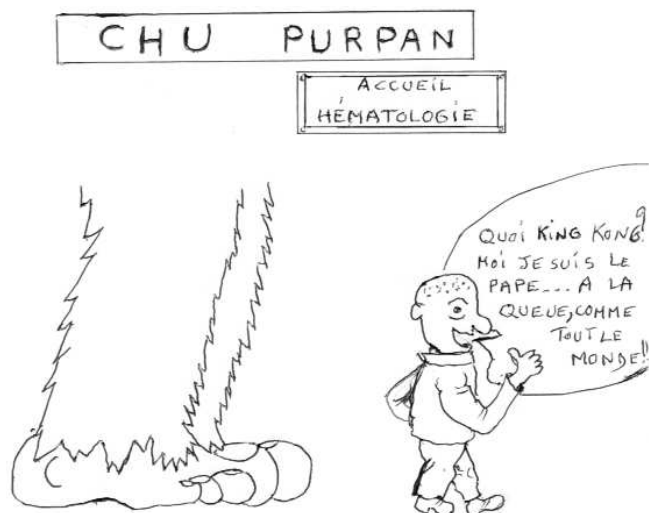 CHU PURPAN
ACCUEIL
HÉMATOLOGIE
QUOI KING KONG?
MOI JE SUIS LE
PAPE... A LA
QUEUE, COMME
TOUT LE
MONDE!!